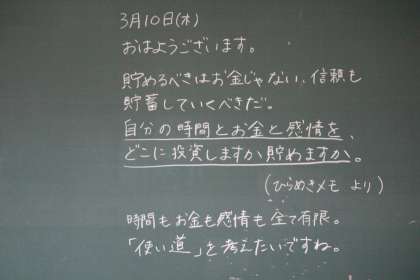 3月10日(木)
おはようございます。
貯めるべきはお金じゃない、信頼も
貯蓄していくべきだ。
自分の時間とお金と感情を、
どこに投資しますか貯めますか。
(ひらめきメモ より)
時間もお金も感情も全て有限。
「使い道」を考えたいですね。